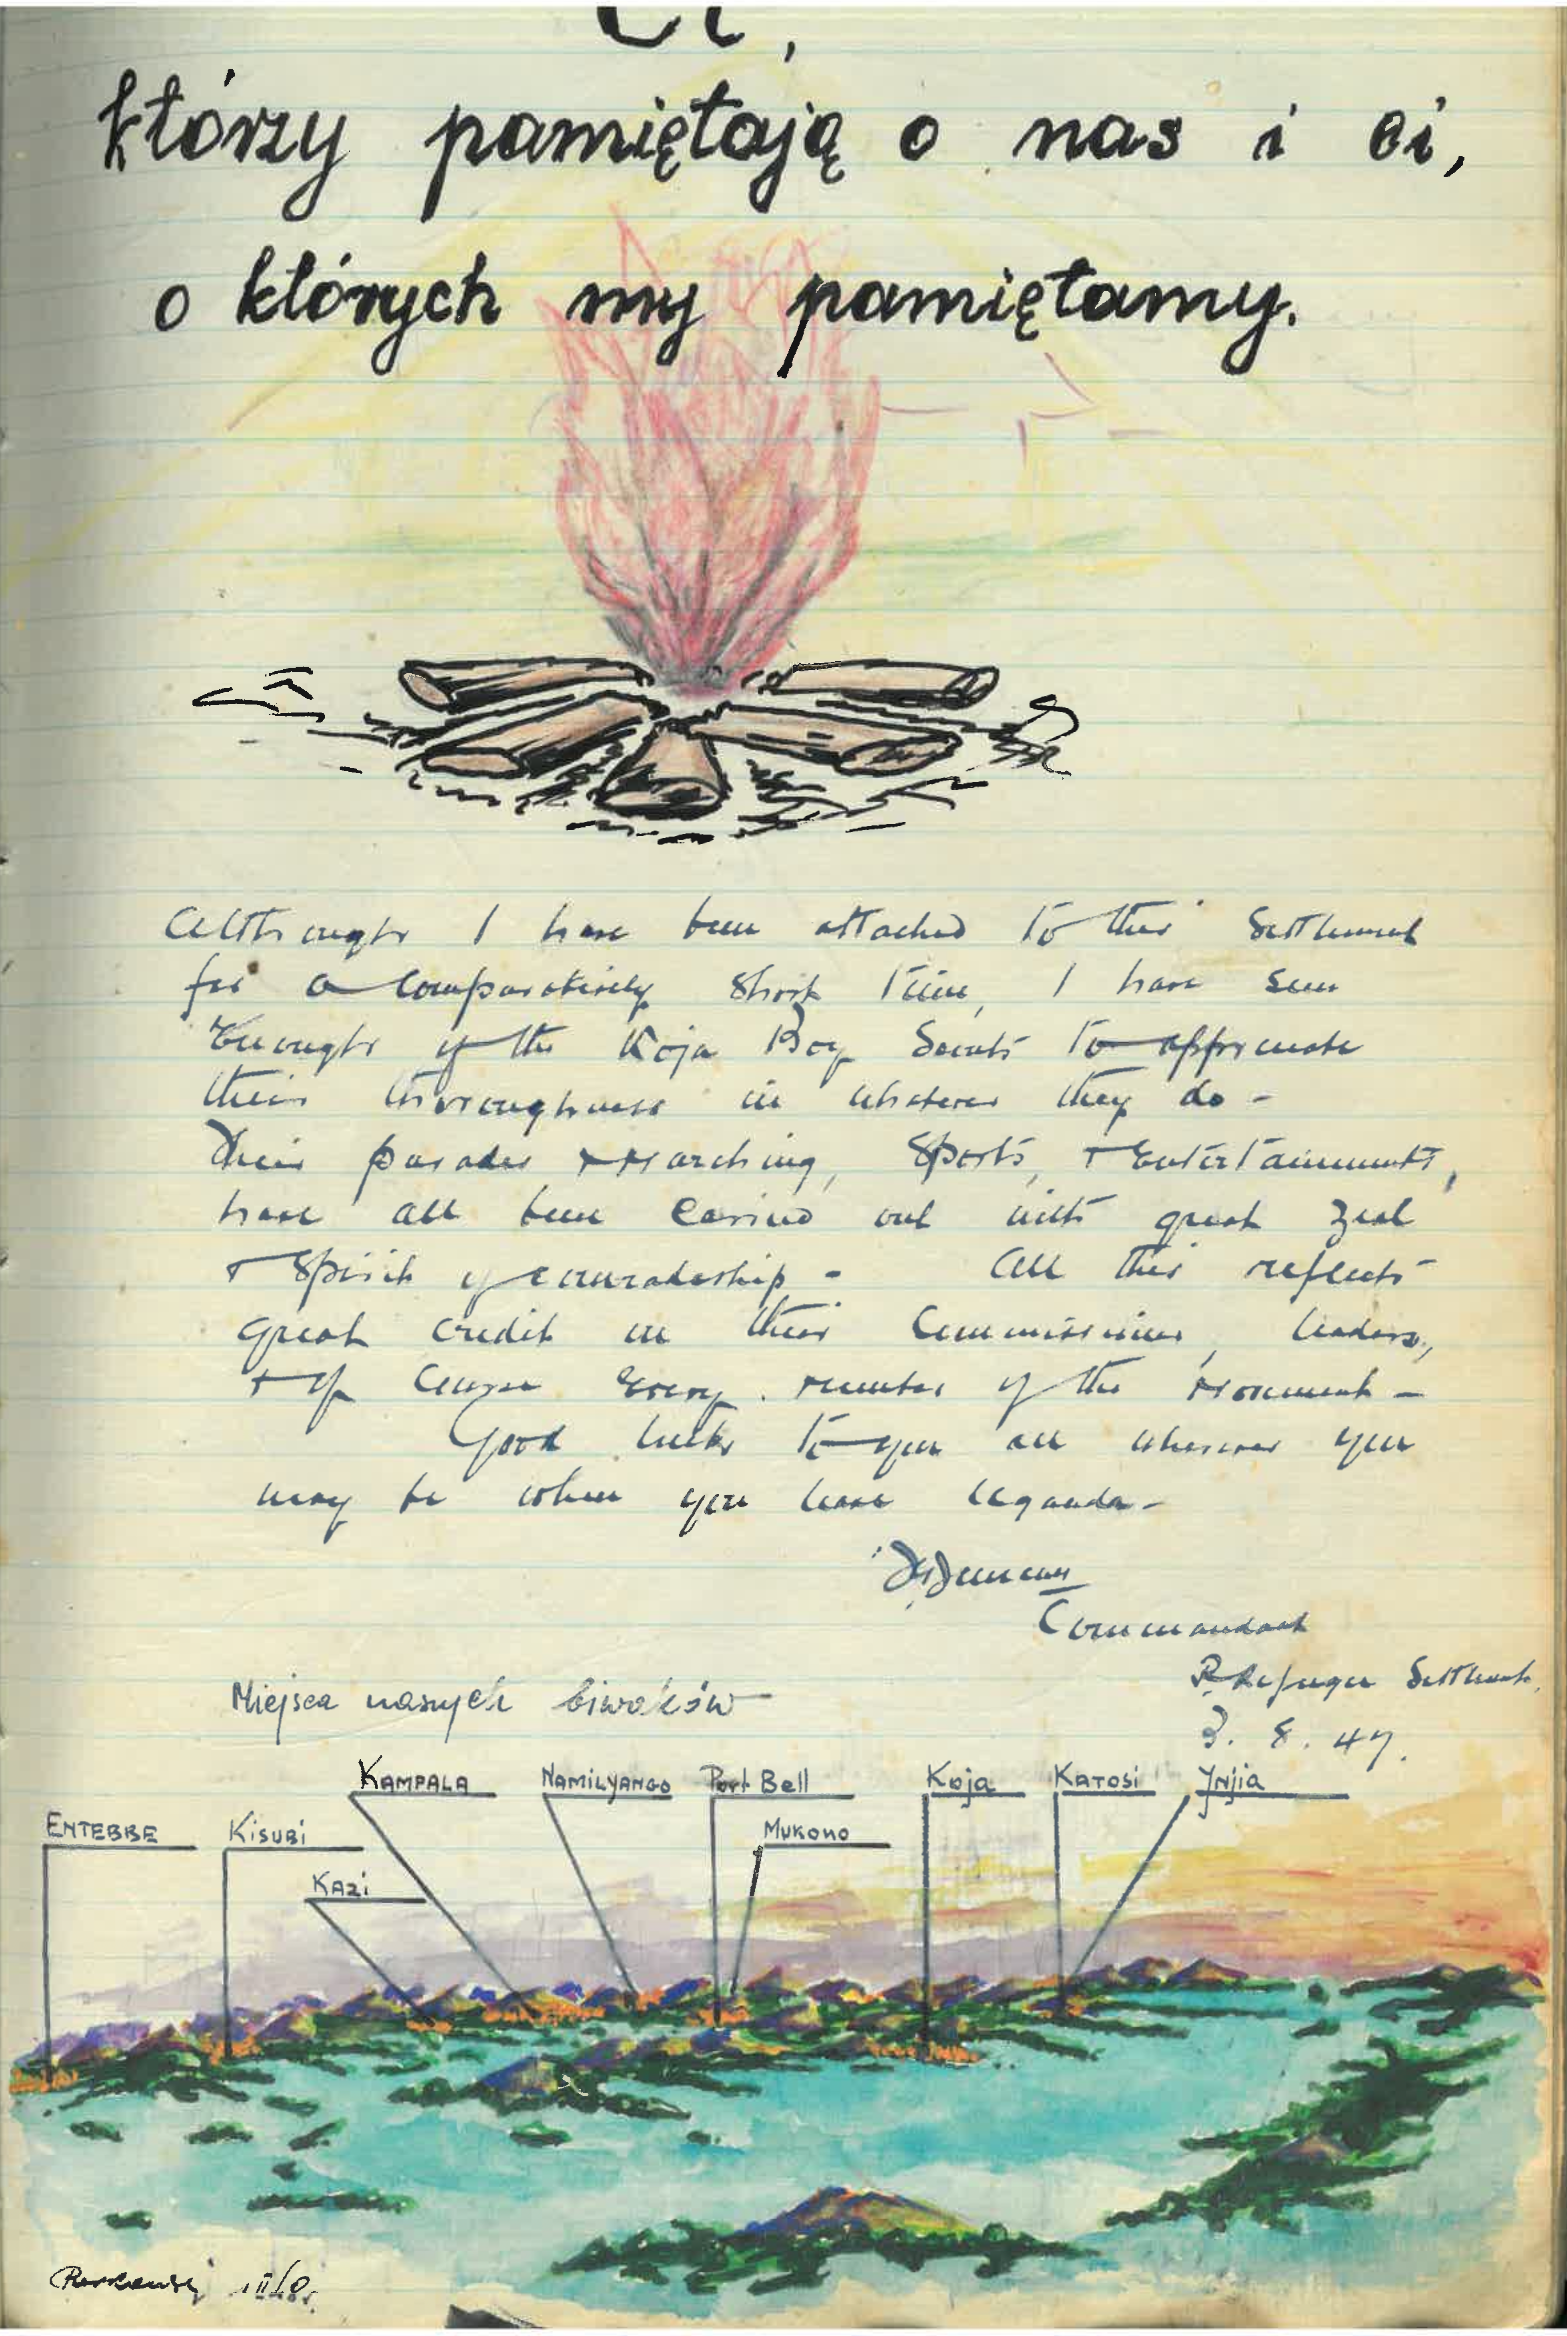 Ci,
którzy pamiętają o nas i ci,
o których my pamiętamy.
Although I have been attached to this Settlement
for a comparatively short time, I have seen
Enough of the Koja Boy Scouts to appreciate
their thoroughness in whatever they do -
Their parades & Marching, Sports, & Entertainments,
have all been carried out with great zeal
& Spirit of comradeship - All this reflects
great credit on their Commissioner, leaders,
& of course Every member of the Movement -
Good luck to you all wherever you
may be when you leave Uganda -
Commandant
P. Refugee Settlement,
3. 8. 47.
Miejsca naszych biwaków
KAMPALA NAMILYANGO Port Bell Koja KATOSI Jnjia
ENTEBBE KiSUBi MUKONO
KAZi